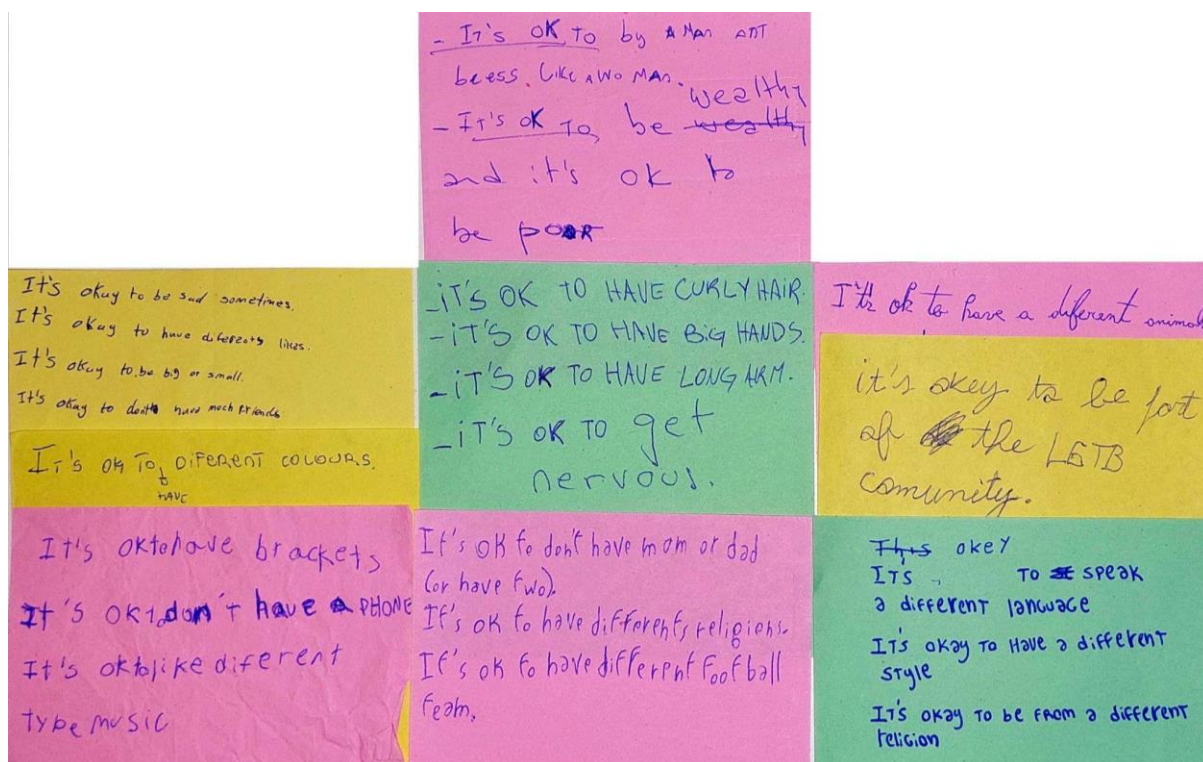 - IT's OK TO by A MAN ANT
beess. LiKe A WO MAN.
wealthy
- IT's OK TO, be wealthy
and it's OK to
be pooR
It's okay to be sad sometimes.
It's okay to have diferents likes.
It's okay to be big or small.
It's okay to dont have much friends
IT's OK TO DIFERENT COLOURS.
HAVE
-iT'S OK TO HAVE CURLY HAIR.
-iT'S OK TO HAVE BIG HANDS.
-iT'S OK TO HAVE LONG ARM.
-iT'S OK TO get
nervous.
It's ok to have a diferent animal
it's okey to be part
of the LGTB
comunity.
It's ok to have brackets
It's ok to don't have a PHONE
It's ok to like diferent
type music
It's OK to don't have mom or dad
(or have two).
It's ok to have differents religions.
It's ok to have different Football
team.
This okey
ITS, TO SPEAK
a different language
IT's okay To Have a different
style
IT's okay To be From a different
religion